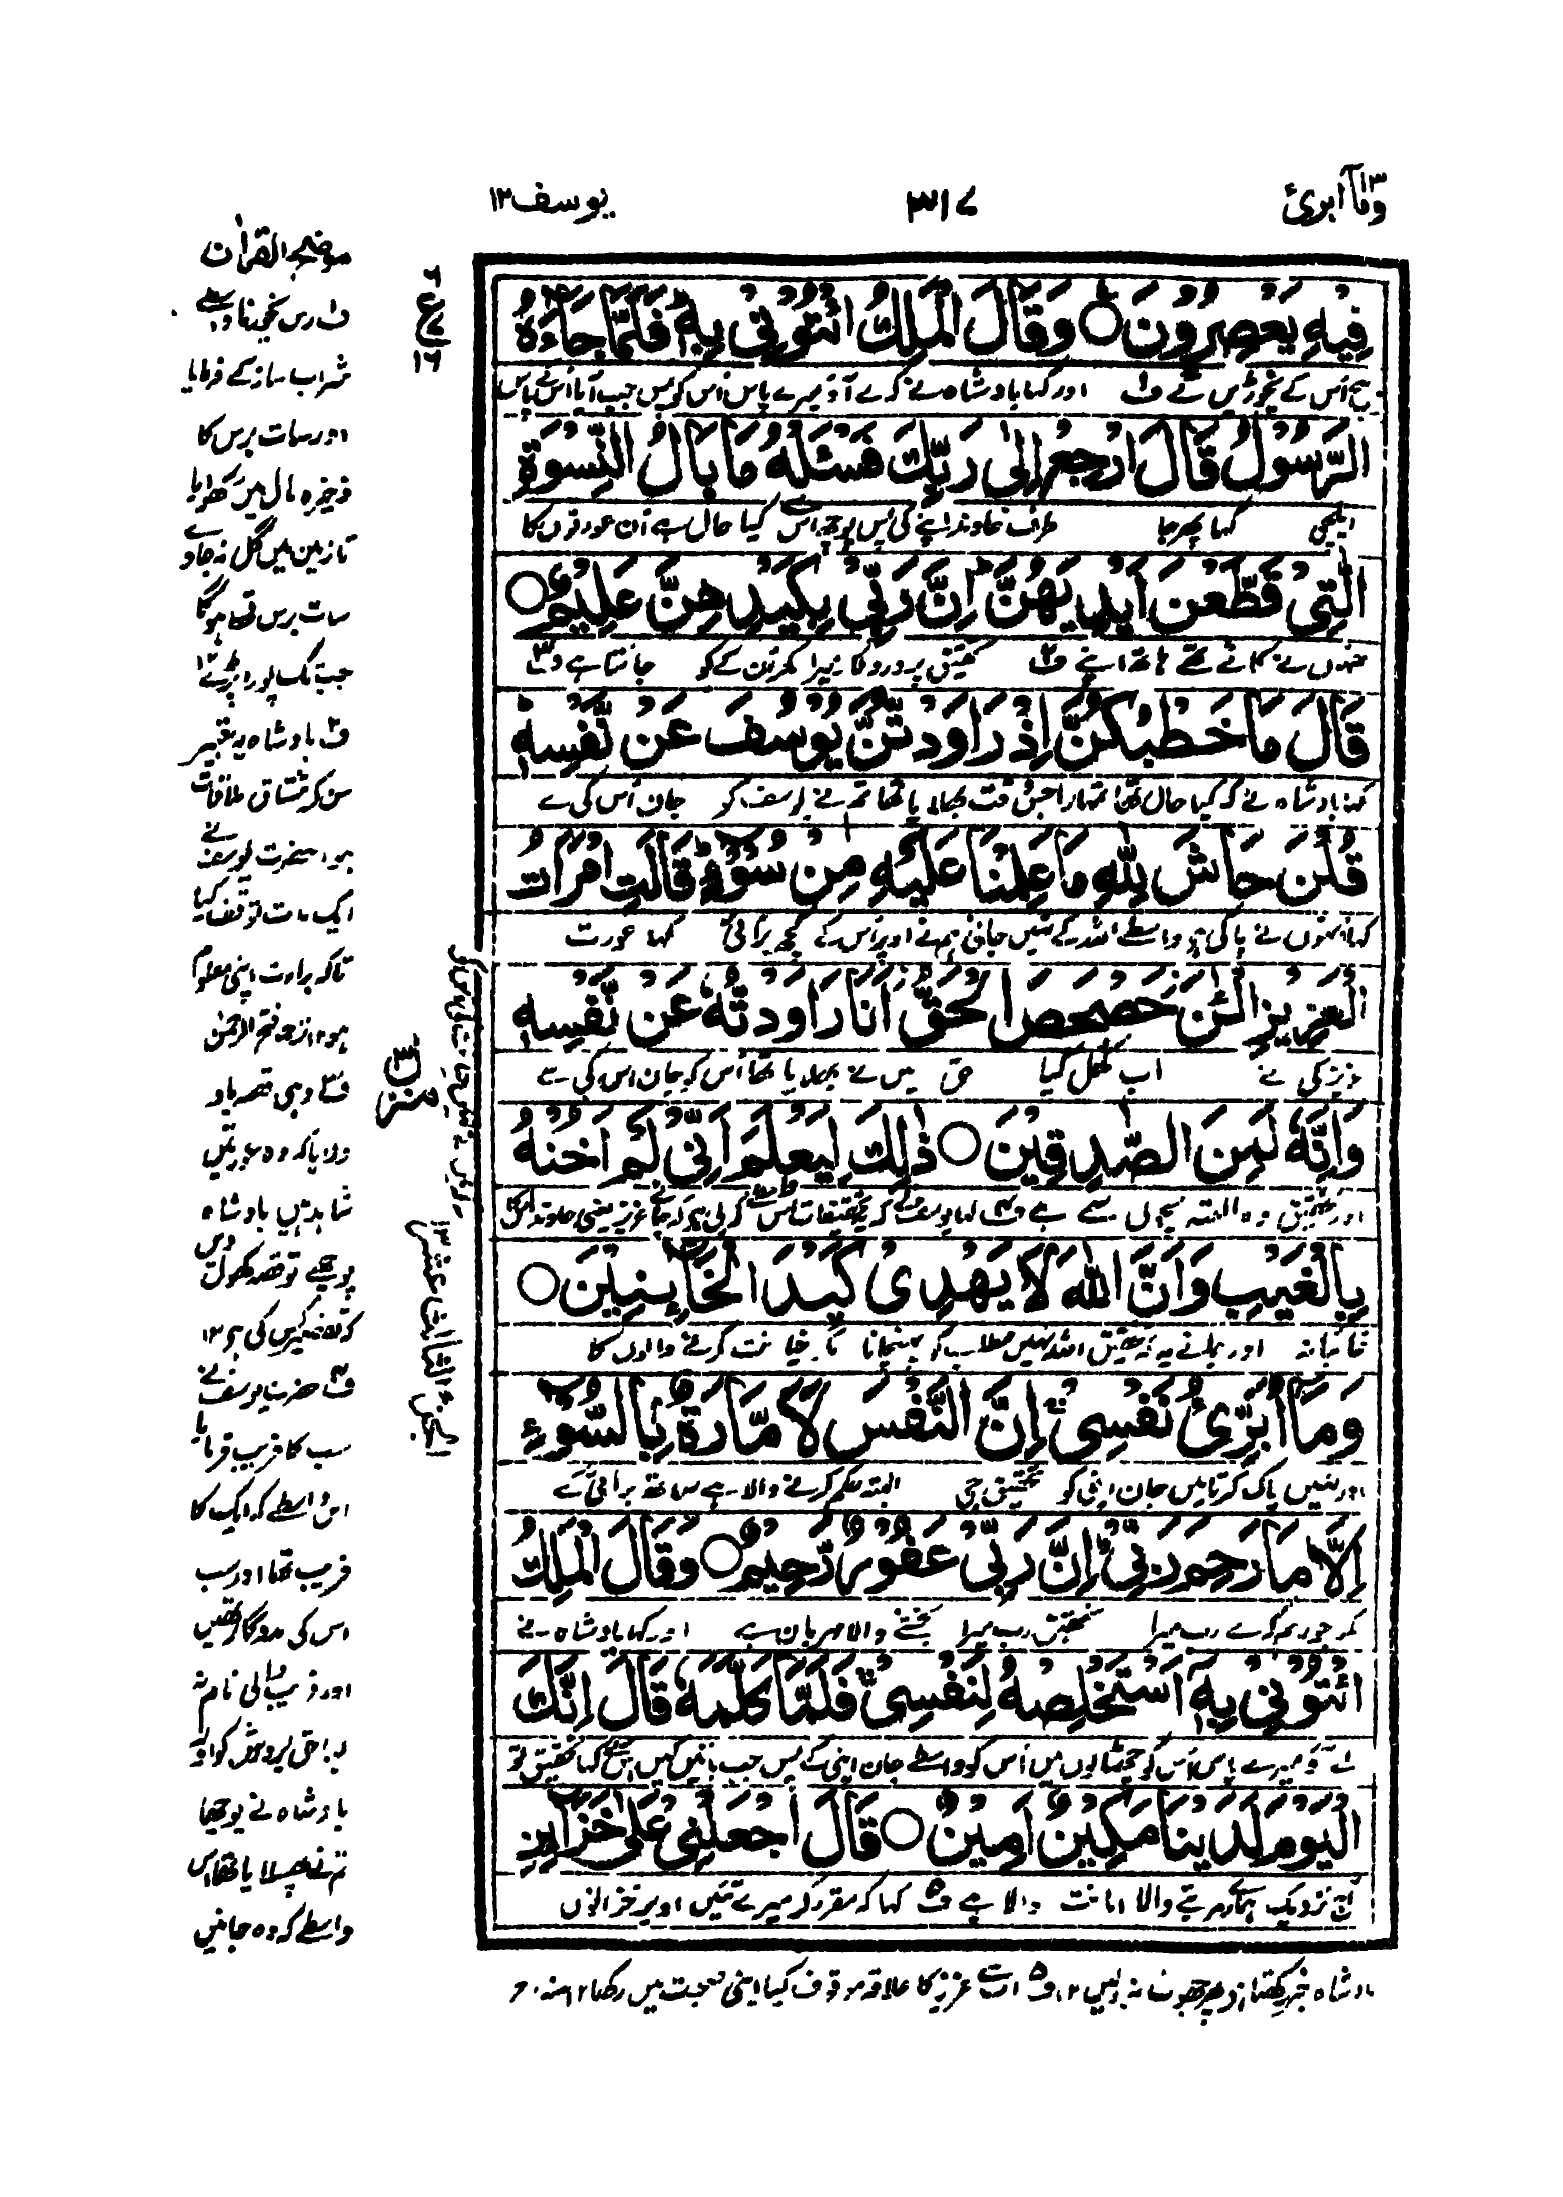 وماۤ ابرئ ١٣
٣١٧
يوسف ١٢
فِيْهِ يَعْصِرُوْنَ ○ وَقَالَ الْمَلِكُ ائْتُوْنِيْ بِهٖ ۚ فَلَمَّا جَآءَهُ
بیچ اس کے نچوڑیں گے ف اور کہا بادشاہ نے کہ لے آؤ میرے پاس اس کو پس جب آیا اس کے پاس
الرَّسُوْلُ قَالَ ارْجِعْ اِلٰى رَبِّكَ فَسْـَٔلْهُ مَا بَالُ النِّسْوَةِ
ایلچی کہا پھر جا طرف خاوند اپنے کی پس پوچھ اس سے کیا حال ہے ان عورتوں کا
الّٰتِيْ قَطَّعْنَ اَيْدِيَهُنَّ ؕ اِنَّ رَبِّيْ بِكَيْدِهِنَّ عَلِيْمٌ ○
جنہوں نے کاٹے تھے ہاتھ اپنے ف٢ تحقیق پروردگار میرا مکر ان کے کو جانتا ہے ف٣
قَالَ مَا خَطْبُكُنَّ اِذْ رَاوَدْتُّنَّ يُوْسُفَ عَنْ نَّفْسِهٖ ؕ
کہا بادشاہ نے کہ کیا حال تھا تمہارا جس وقت بھلایا تھا تم نے یوسف کو جان اس کی سے
قُلْنَ حَاشَ لِلّٰهِ مَا عَلِمْنَا عَلَيْهِ مِنْ سُوْٓءٍ ؕ قَالَتِ امْرَاَتُ
کہا انہوں نے پاکی ہے واسطے اللہ کے نہیں جانی ہم نے اوپر اس کے کچھ برائی کہا عورت
الْعَزِيْزِ الْـٰٔنَ حَصْحَصَ الْحَقُّ ؗ اَنَا رَاوَدْتُّهٗ عَنْ نَّفْسِهٖ
عزیز کی نے اب کھل گیا حق میں نے بھلایا تھا اس کو جان اس کی سے
وَاِنَّهٗ لَمِنَ الصّٰدِقِيْنَ ○ ذٰلِكَ لِيَعْلَمَ اَنِّيْ لَمْ اَخُنْهُ
اور تحقیق وہ البتہ سچوں سے ہے ف٤ کہا یوسف نے کہ یہ تحقیقات اس لئے کی کہ جانے عزیز یعنی خاوند
بِالْغَيْبِ وَاَنَّ اللّٰهَ لَا يَهْدِيْ كَيْدَ الْخَآئِنِيْنَ ○
غائبانہ اور جانے یہ کہ تحقیق اللہ نہیں مطلب کو پہنچاتا مکر خیانت کرنے والوں کا
وَمَآ اُبَرِّئُ نَفْسِيْ ۚ اِنَّ النَّفْسَ لَاَمَّارَةٌۢ بِالسُّوْٓءِ
اور نہیں پاک کرتا میں جان اپنی کو تحقیق جی البتہ حکم کرنے والا ہے ساتھ برائی کے
اِلَّا مَا رَحِمَ رَبِّيْ ؕ اِنَّ رَبِّيْ غَفُوْرٌ رَّحِيْمٌ ○ وَقَالَ الْمَلِكُ
مگر جو رحم کرے رب میرا تحقیق رب میرا بخشنے والا مہربان ہے اور کہا بادشاہ نے
ائْتُوْنِيْ بِهٖٓ اَسْتَخْلِصْهُ لِنَفْسِيْ ۚ فَلَمَّا كَلَّمَهٗ قَالَ اِنَّكَ
لے آؤ میرے پاس اس کو چھٹا لوں میں اس کو واسطے جان اپنی کے پس جب باتیں کیں اس سے کہا تحقیق تو
الْيَوْمَ لَدَيْنَا مَكِيْنٌ اَمِيْنٌ ○ قَالَ اجْعَلْنِيْ عَلٰى خَزَآئِنِ
آج نزدیک ہمارے مرتبے والا امانت والا ہے ف٥ کہا کہ مقرر کر میرے تئیں اوپر خزانوں
موضح القرآن
ف رس نچوڑنا واسطے
شراب ساز کے فرمایا
اور سات برس کا
ذخیرہ بال میں رکھوایا
تا زمین میں گل نہ جاوے
سات برس قحط ہوگا
جب تک پورا پڑے ١٢
ف٢ بادشاہ یہ تعبیر
سن کر مشتاق ملاقات
ہوا حضرت یوسف نے
ایک بات توقف کیا
تاکہ براءت اپنی معلوم
ہو ١٢ از فتح الرحمٰن
ف٣ وہی قصہ یاد
دلایا کہ وہ عورتیں
شاہد ہیں بادشاہ
پوچھے تو قصہ کھول دیں
کہ تقصیر کس کی ہے ١٢
ف٤ حضرت یوسف نے
سب کا فریب فرمایا
اس واسطے کہ ایک کا
فریب تھا اور سب
اس کی مددگار تھیں
اور فریب والی کا نام نہ
لیا حق پرورش کو اور
بادشاہ نے پوچھا
تم نے پھسلایا تھا اس
واسطے کہ وہ جانیں
بادشاہ خبر رکھتا ہے پھر جھوٹ نہ بولیں ١٢ ف٥ اب سے عزیز کا علاقہ موقوف کیا اپنی صحبت میں رکھا ١٢ منہ
ع
١٦
منزل ٣
الجزء الثالث عشر ١٣